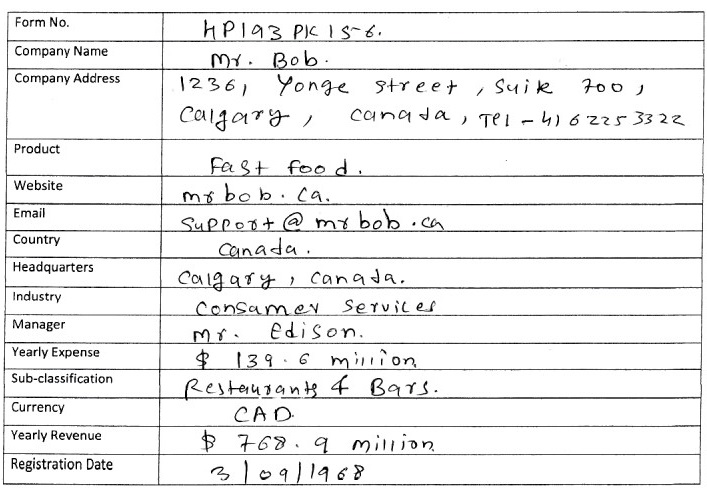 Form No. HP193 PK 15-6.
Company Name Mr. Bob.
Company Address 1236, Yonge street, Suite 700,
Calgary, Canada, Tel - 4162253322
Product Fast food.
Website mrbob.ca.
Email support@mrbob.ca
Country Canada.
Headquarters Calgary, Canada.
Industry Consamer Services
Manager Mr. Edison.
Yearly Expense $ 139.6 million
Sub-classification Restaurants & Bars.
Currency CAD.
Yearly Revenue $ 768.9 million
Registration Date 3/09/1968